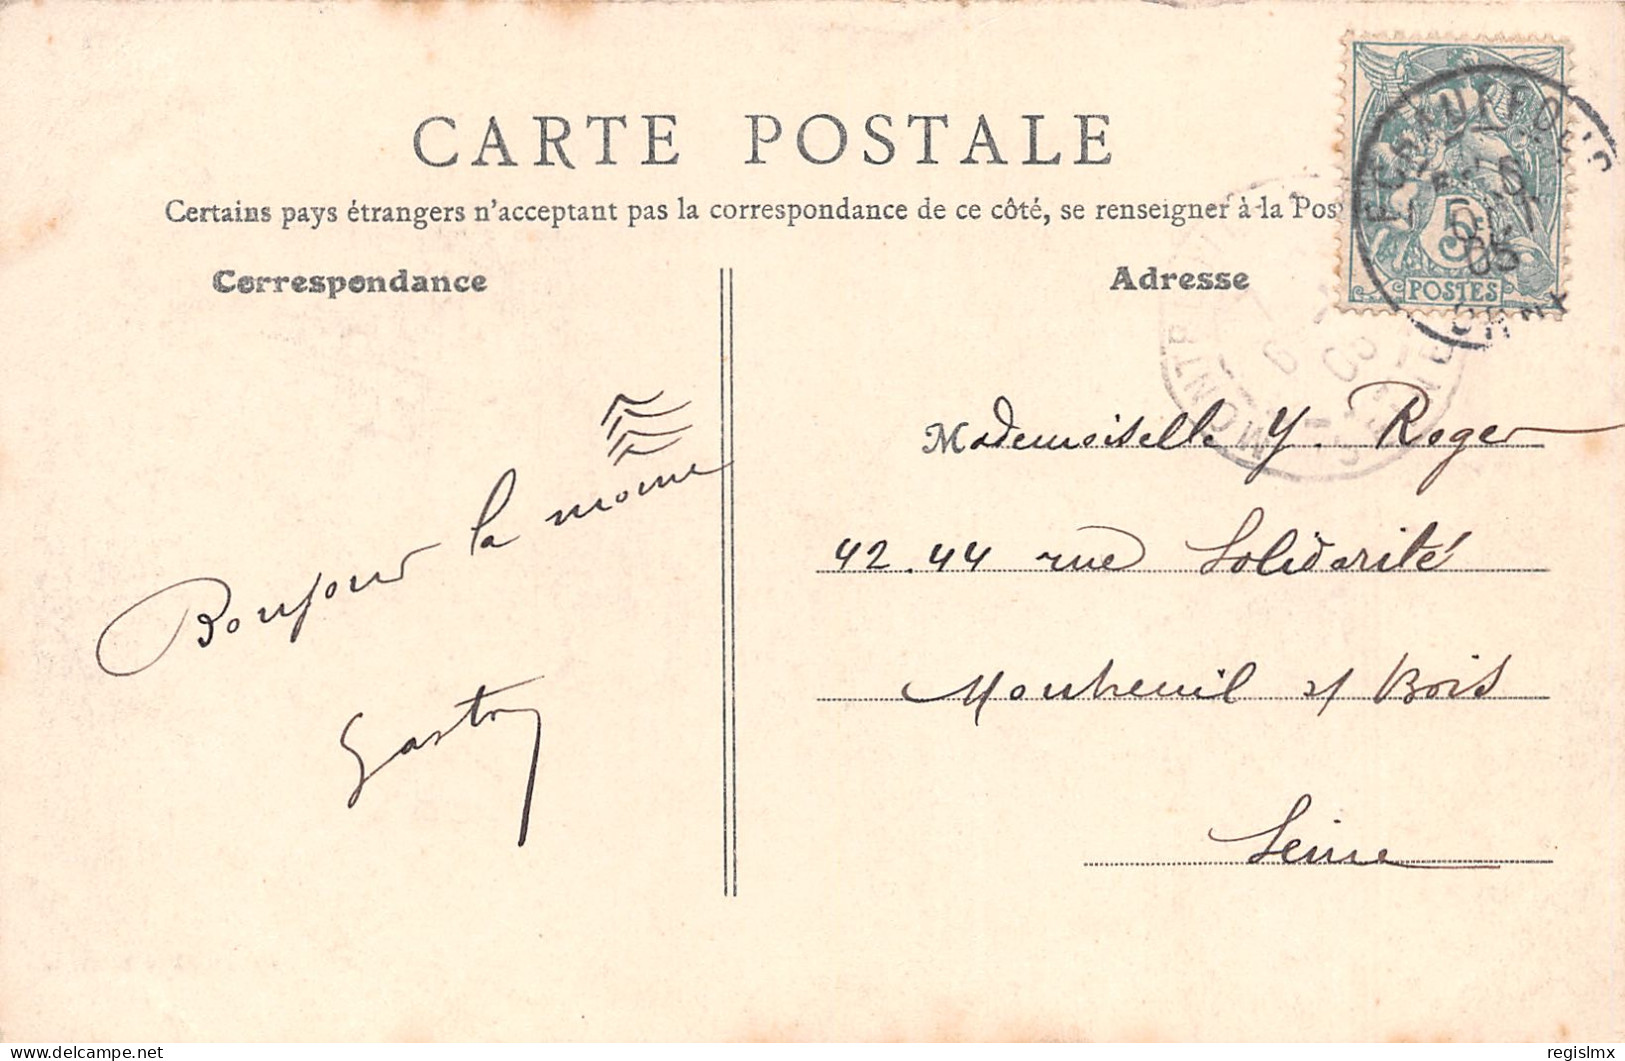 CARTE POSTALE
Certains pays étrangers n'acceptant pas la correspondance de ce côté, se renseigner à la Pos
Correspondance
Adresse
5
POSTES
5
OCT
05
MONT
Bonjour la
Gaston
Mademoiselle Y. Roger
42.44 rue Solidarité
Montreuil s/ Bois
Seine
regislmx